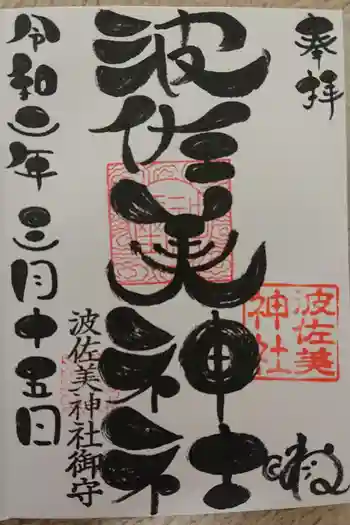 奉拝
波佐美神社
波佐美
神社
波佐美神社御守
令和二年三月廿五日